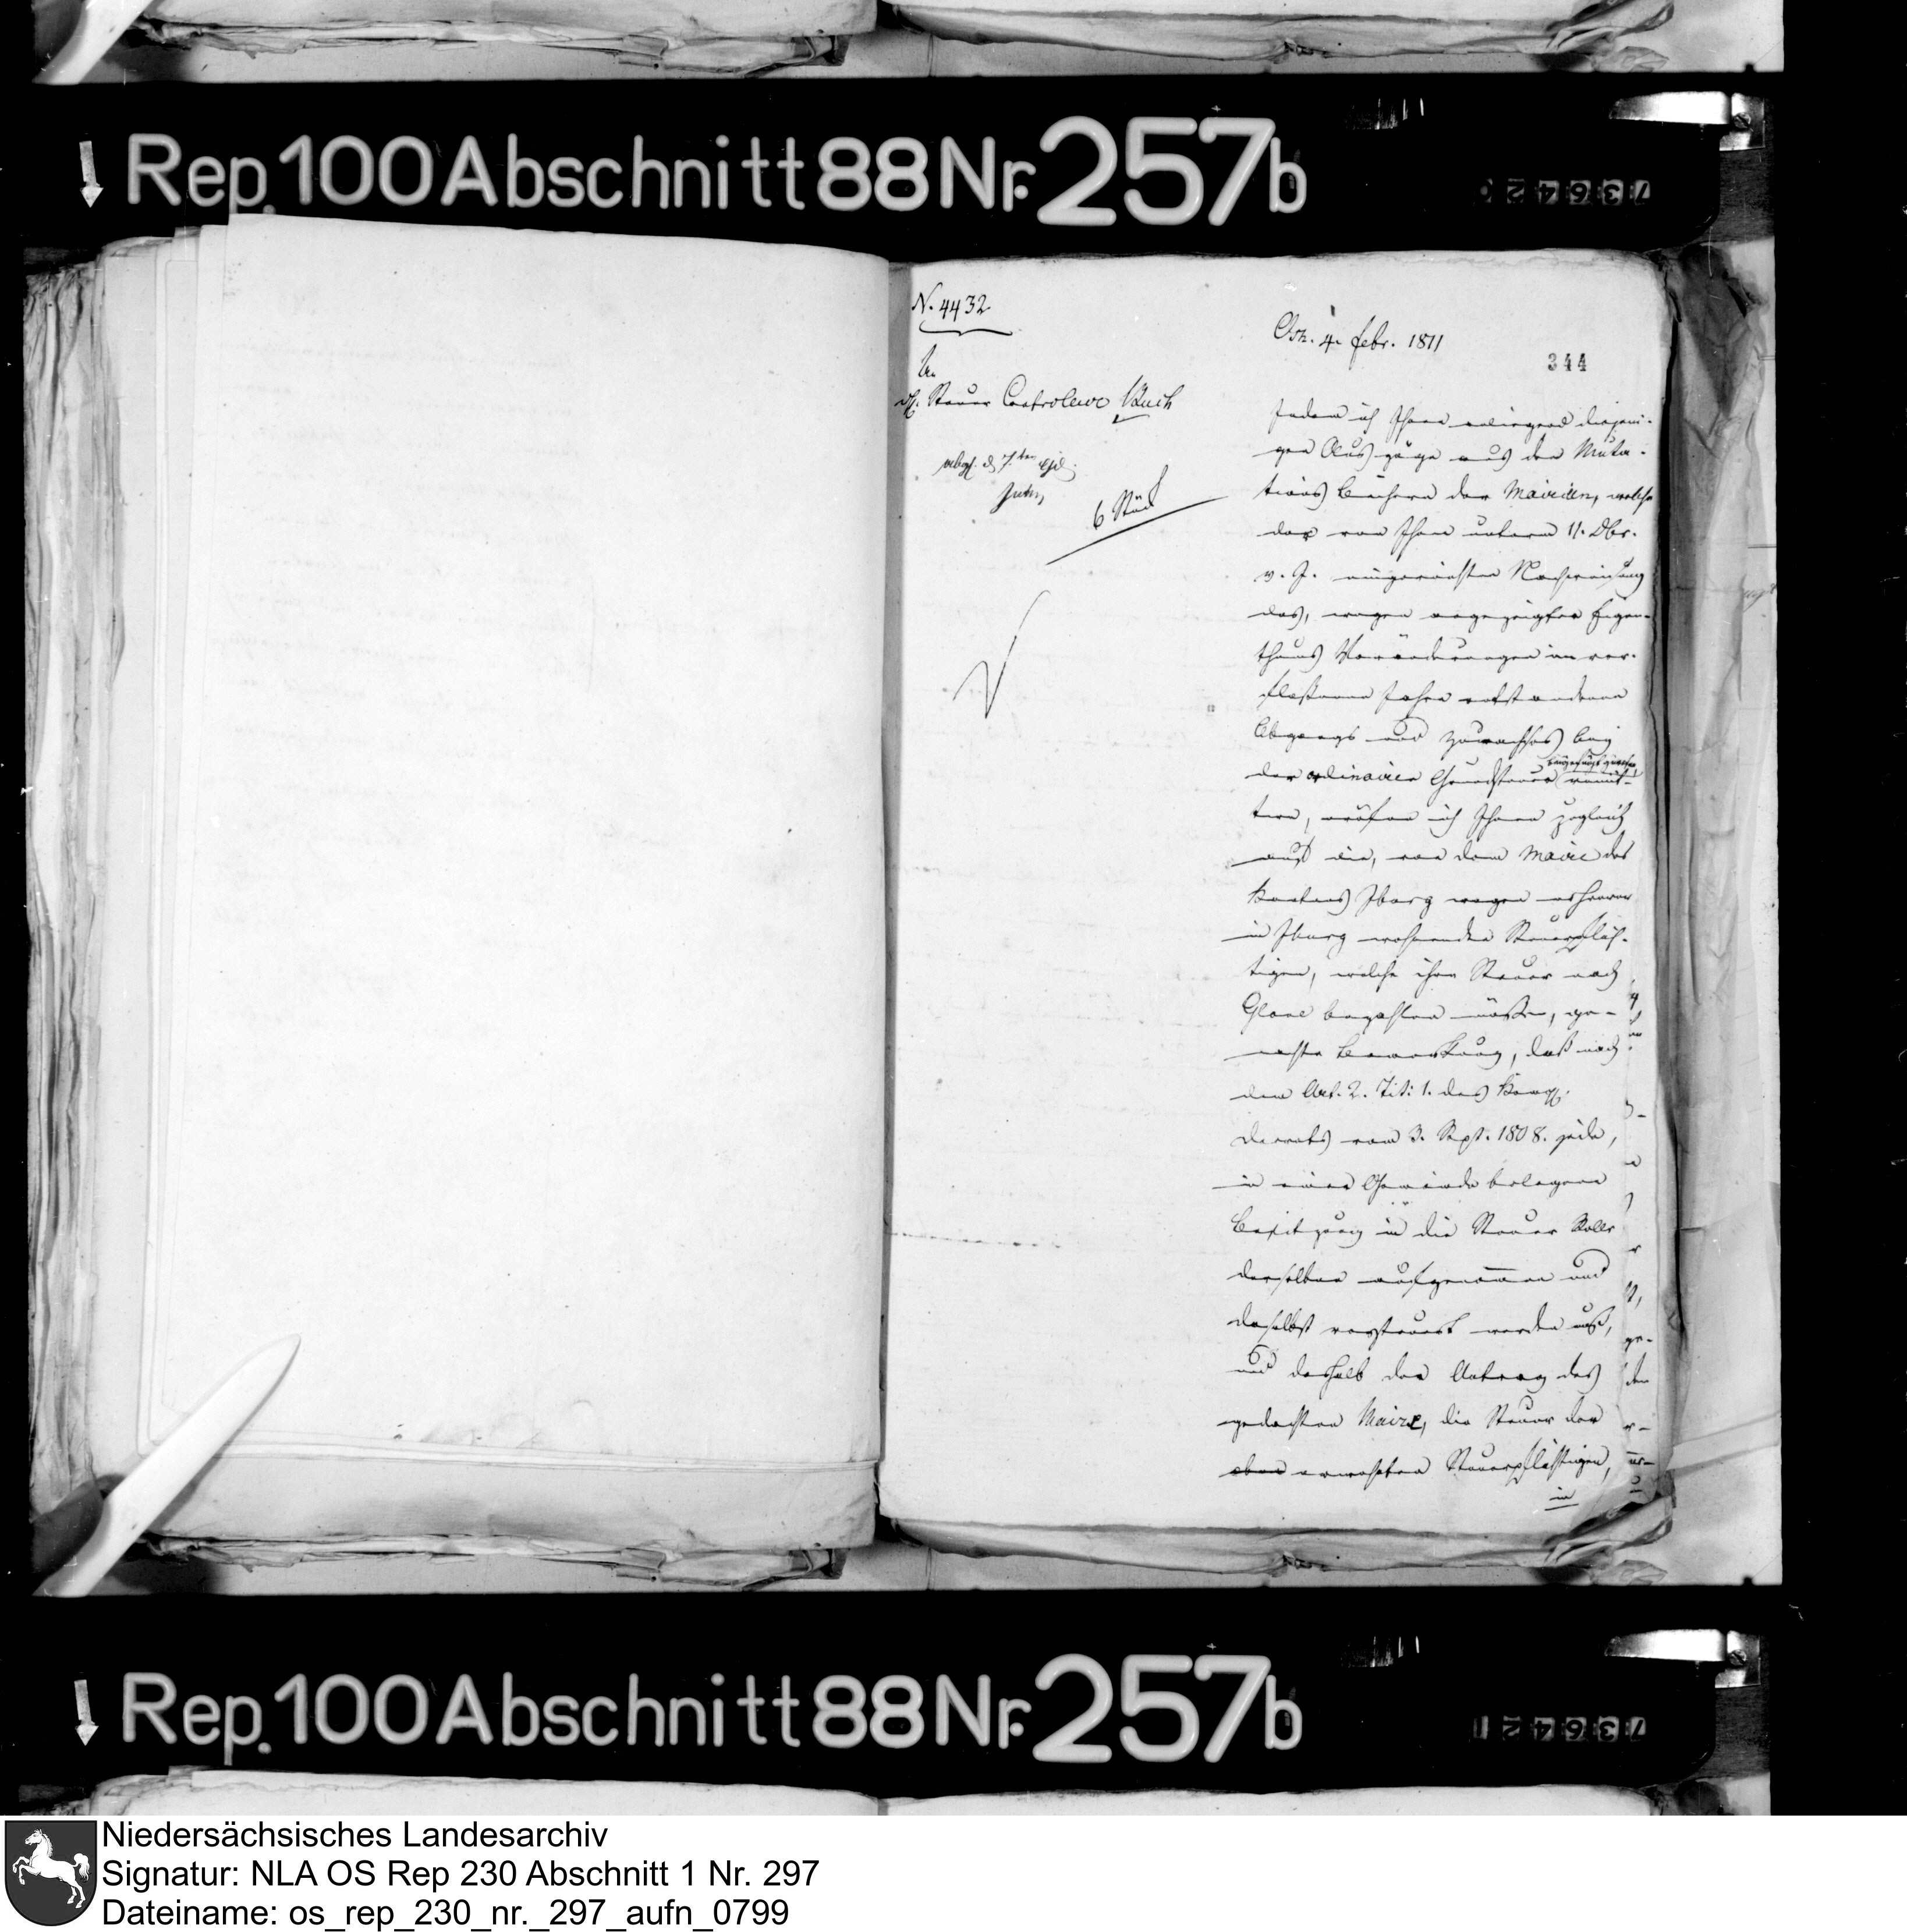 Rep. 100 Abschnitt 88 Nr. 257b
736420
N. 4432
Osn. 4. Febr. 1811
344
An
d. Steuer Controleur Buch
6 Stück
Indem ich Ihnen diejeni-
gen Auszüge aus den Muta-
tions Büchern der Mairien, welche
der von Ihnen unterm 11. Dbr.
v. J. eingereichten Nachweisung
des, wegen angezeigter Eigen-
thums Veränderungen im ver-
floßenen Jahre entstandenen
Abgangs und Zuwachses bey
der ordinairen Grundsteuer beygefügt gewesen remit-
tire, eröfne ich Ihnen zugleich
auf die, von dem Maire des
Kantons Iburg wegen mehrerer
in Iburg wohnenden Steuerpflich-
tigen, welche ihre Steuer nach
Glane bezahlen müßen, ge-
machte Bemerkung, daß nach
dem Art. 2. Tit: 1. des Königl.
Decrets vom 3. Spt. 1808. jede,
in einer Gemeinde belegene
Besitzung in die Steuer Rolle
derselben aufgenommen und
daselbst versteuert werden muß,
und deshalb der Antrag des
gedachten Maire, die Steuer der
eben erwehnten Steuerpflichtigen,
in
Rep. 100 Abschnitt 88 Nr. 257b
736421
Niedersächsisches Landesarchiv
Signatur: NLA OS Rep 230 Abschnitt 1 Nr. 297
Dateiname: os_rep_230_nr._297_aufn_0799